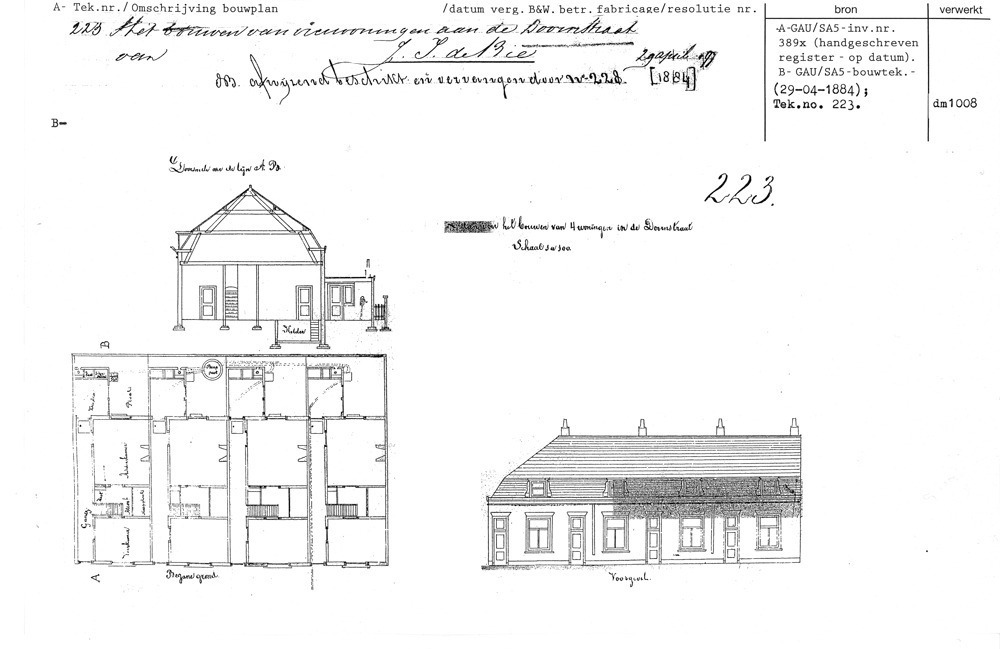 A- Tek.nr./ Omschrijving bouwplan /datum verg. B&W. betr. fabricage/resolutie nr. bron verwerkt
223 Het bouwen van vier woningen aan de Doornstraat
van J. J. de Bie 29 april
NB. afwijzend beschikt en vervangen door nr 228. [1884]
A-GAU/SA5-inv.nr.
389x (handgeschreven
register - op datum).
B- GAU/SA5-bouwtek.-
(29-04-1884);
Tek.no. 223. dm1008
B-
Doorsnede over de lijn A B.
223.
het bouwen van 4 woningen in de Doornstraat
Schaal 1 à 100
Kelder
B
Keuken
Gang
Voorkamer
A
Begane grond
Voorgevel.